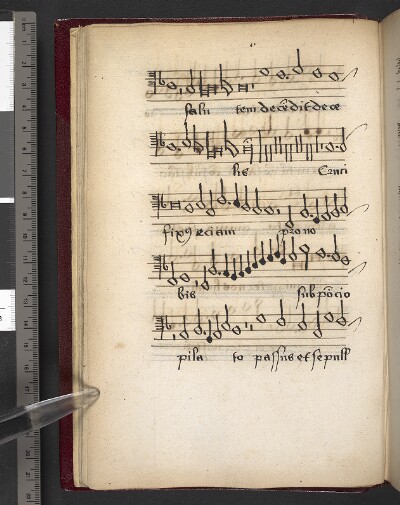 salu tem descēdit de ce
lis Cruci
fixꝰ eciam pro no
bis sub pōcio
pila to passus et sepult